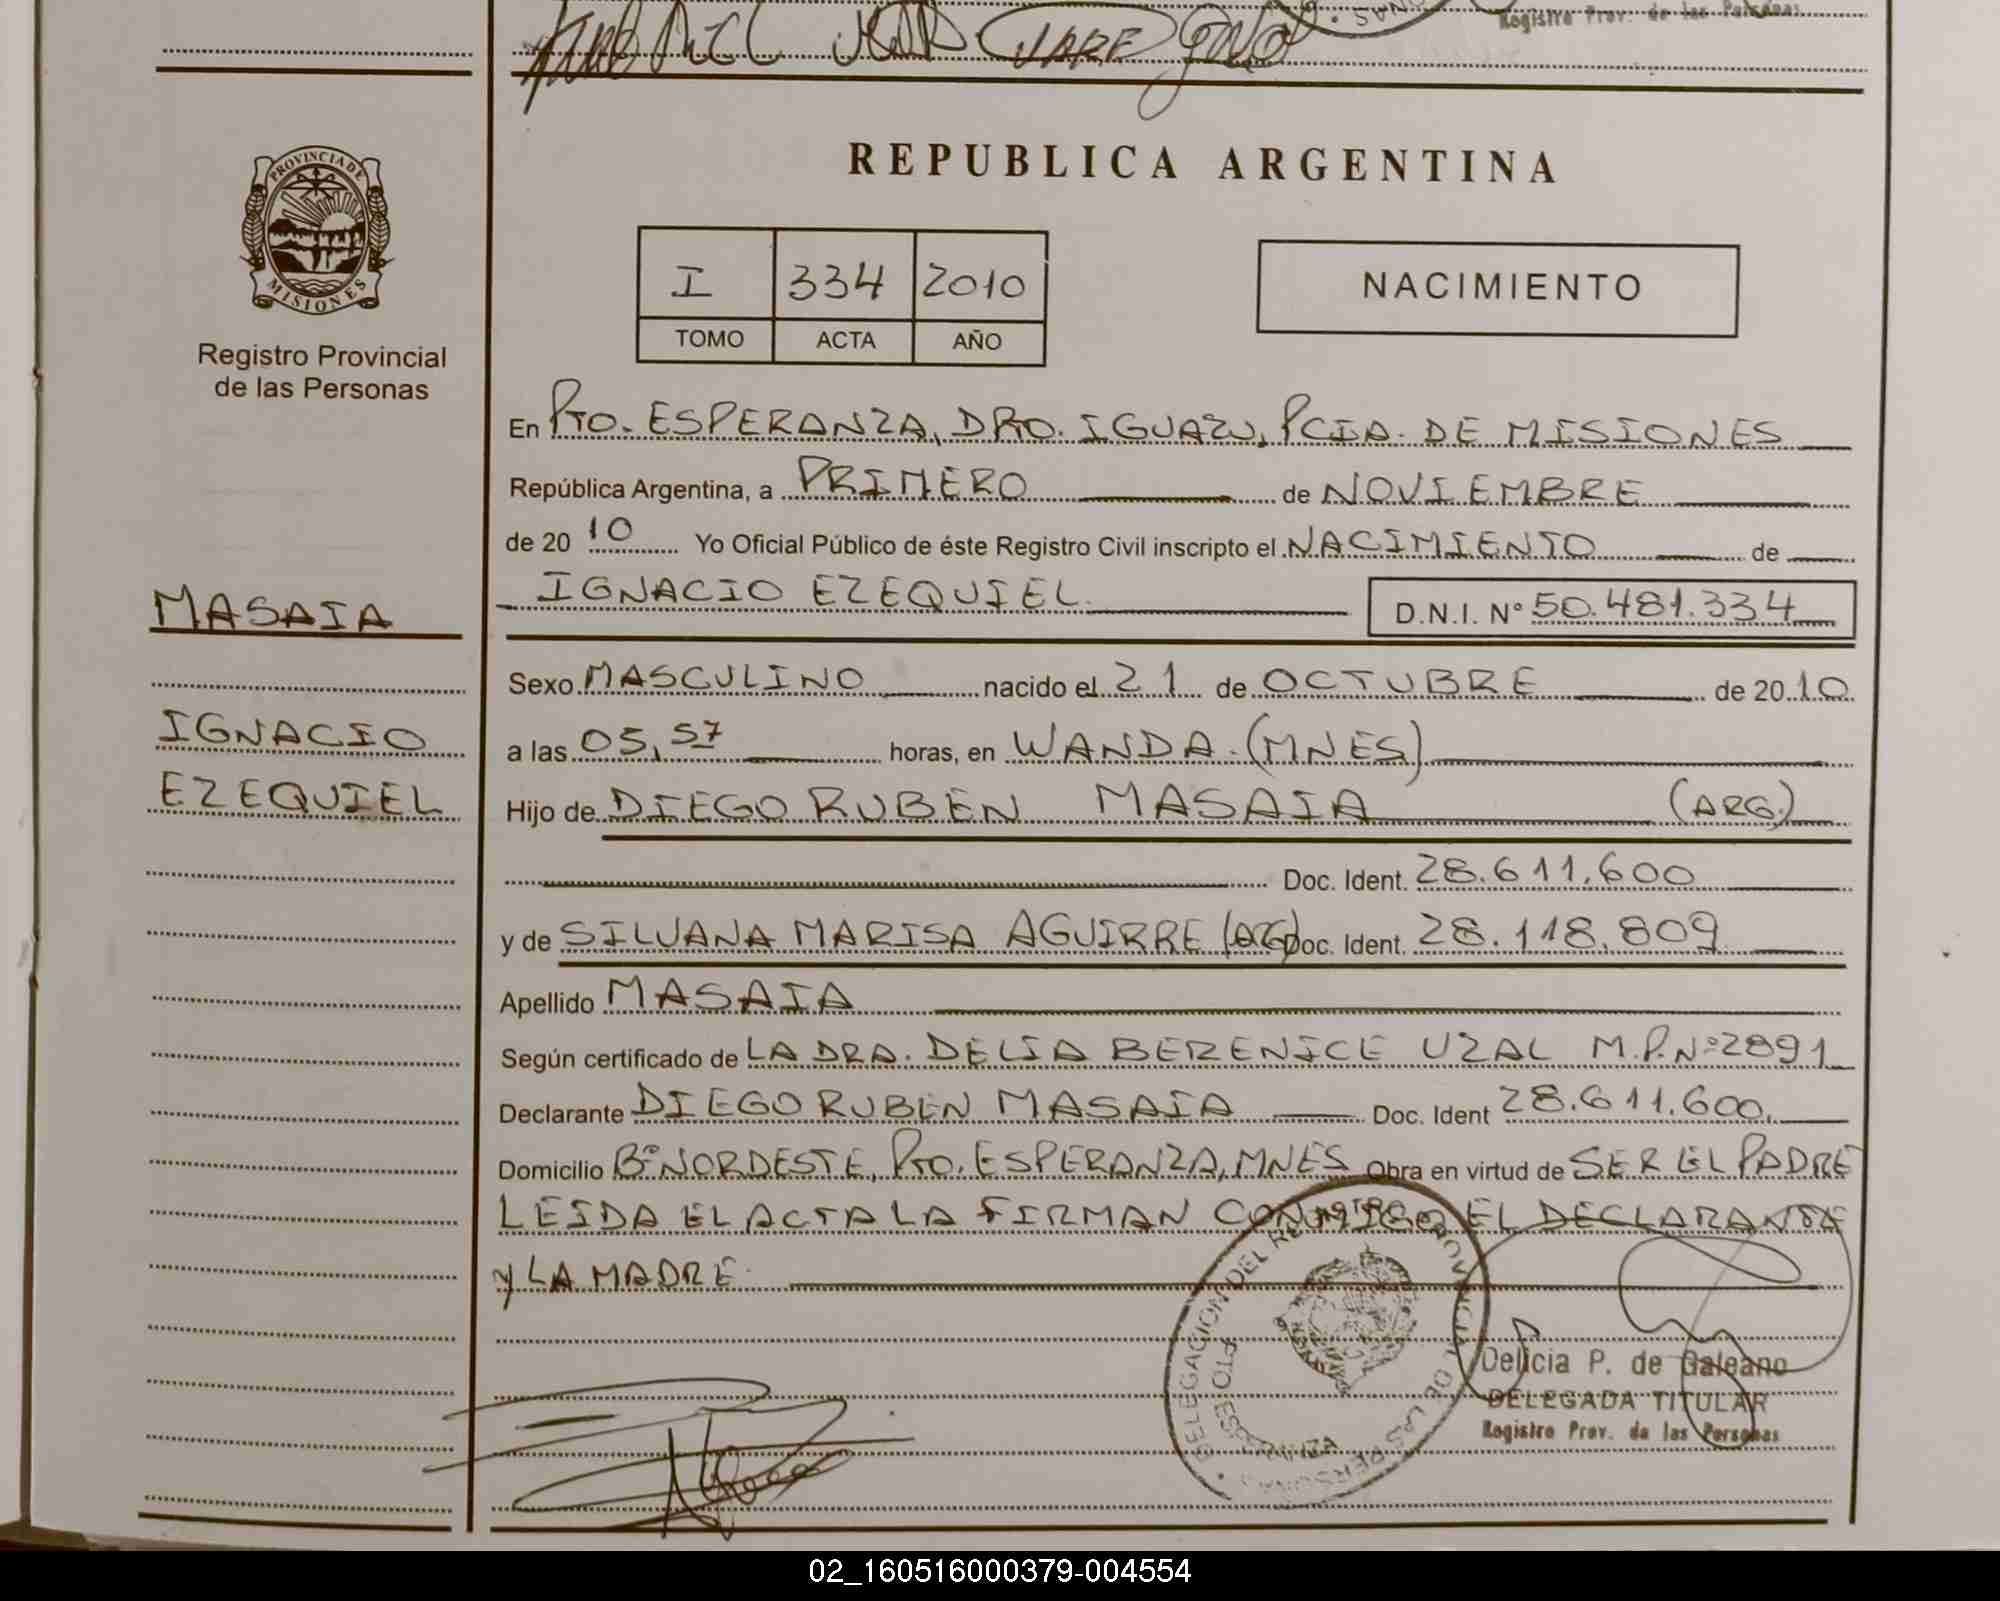 Registro Prov. de las Personas
PROVINCIA DE
MISIONES
Registro Provincial
de las Personas
MASAIA
IGNACIO
EZEQUIEL
REPUBLICA ARGENTINA
I 334 2010
TOMO ACTA AÑO
NACIMIENTO
En PTO. ESPERANZA, DPTO. IGUAZU, PCIA. DE MISIONES
República Argentina, a PRIMERO de NOVIEMBRE
de 20 10 Yo Oficial Público de éste Registro Civil inscripto el NACIMIENTO de
IGNACIO EZEQUIEL. D.N.I. Nº 50.481.334
Sexo MASCULINO nacido el 21 de OCTUBRE de 20 10
a las 05,57 horas, en WANDA.(MNES)
Hijo de DIEGO RUBEN MASAIA (ARG.)
Doc. Ident. 28.611.600
y de SILVANA MARISA AGUIRRE (ARG) Doc. Ident. 28.118.809
Apellido MASAIA
Según certificado de LA DRA. DELIA BERENICE UZAL M.P.Nº2891
Declarante DIEGO RUBEN MASAIA Doc. Ident 28.611.600.
Domicilio Bº NORDESTE, PTO. ESPERANZA, MNES Obra en virtud de SER EL PADRE
LEIDA EL ACTA LA FIRMAN CONMIGO EL DECLARANTE
Y LA MADRE.
DELEGACION DEL REGISTRO PROVINCIAL DE LAS PERSONAS
PTO. ESPERANZA
MISIONES
Delicia P. de Galeano
DELEGADA TITULAR
Registro Prov. de las Personas
02_160516000379-004554